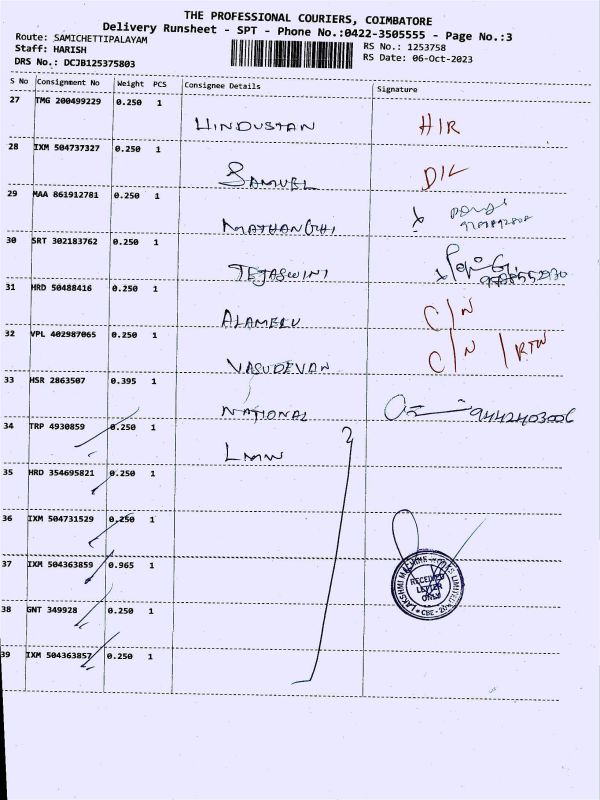 THE PROFESSIONAL COURIERS, COIMBATORE
Delivery Runsheet - SPT - Phone No.:0422-3505555 - Page No.:3
Route: SAMICHETTIPALAYAM
RS No.: 1253758
Staff: HARISH
RS Date: 06-Oct-2023
DRS No.: DCJB125375803
S No Consignment No Weight PCS Consignee Details Signature
27 TMG 200499229 0.250 1
HINDUSTAN H/R
28 IXM 504737327 0.250 1
SAMUEL D/L
29 MAA 861912781 0.250 1
MATHANGHI
30 SRT 302183762 0.250 1
TEJASWINI
31 HRD 50488416 0.250 1
ALAMELU C/N
32 VPL 402987065 0.250 1
VASUDEVAN C/N / RTN
33 HSR 2863507 0.395 1
NATIONAL 9442403006
34 TRP 4930859 0.250 1
LMW
35 HRD 354695821 0.250 1
36 IXM 504731529 0.250 1
37 IXM 504363859 0.965 1
LAKSHMI MACHINE WORKS LIMITED
RECEIVED
LETTER
ONLY
38 GNT 349928 0.250 1
39 IXM 504363857 0.250 1